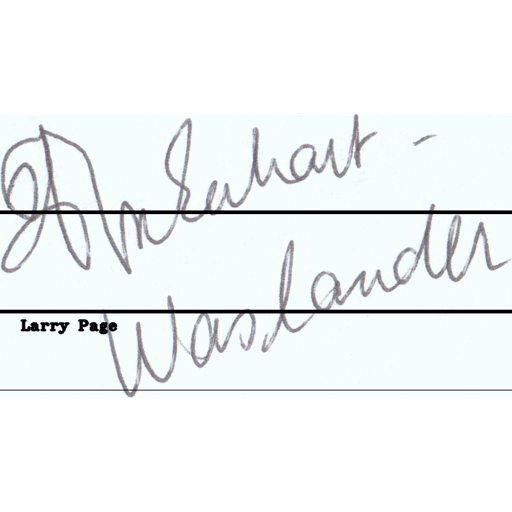 Enhart -
Waslander
Larry Page